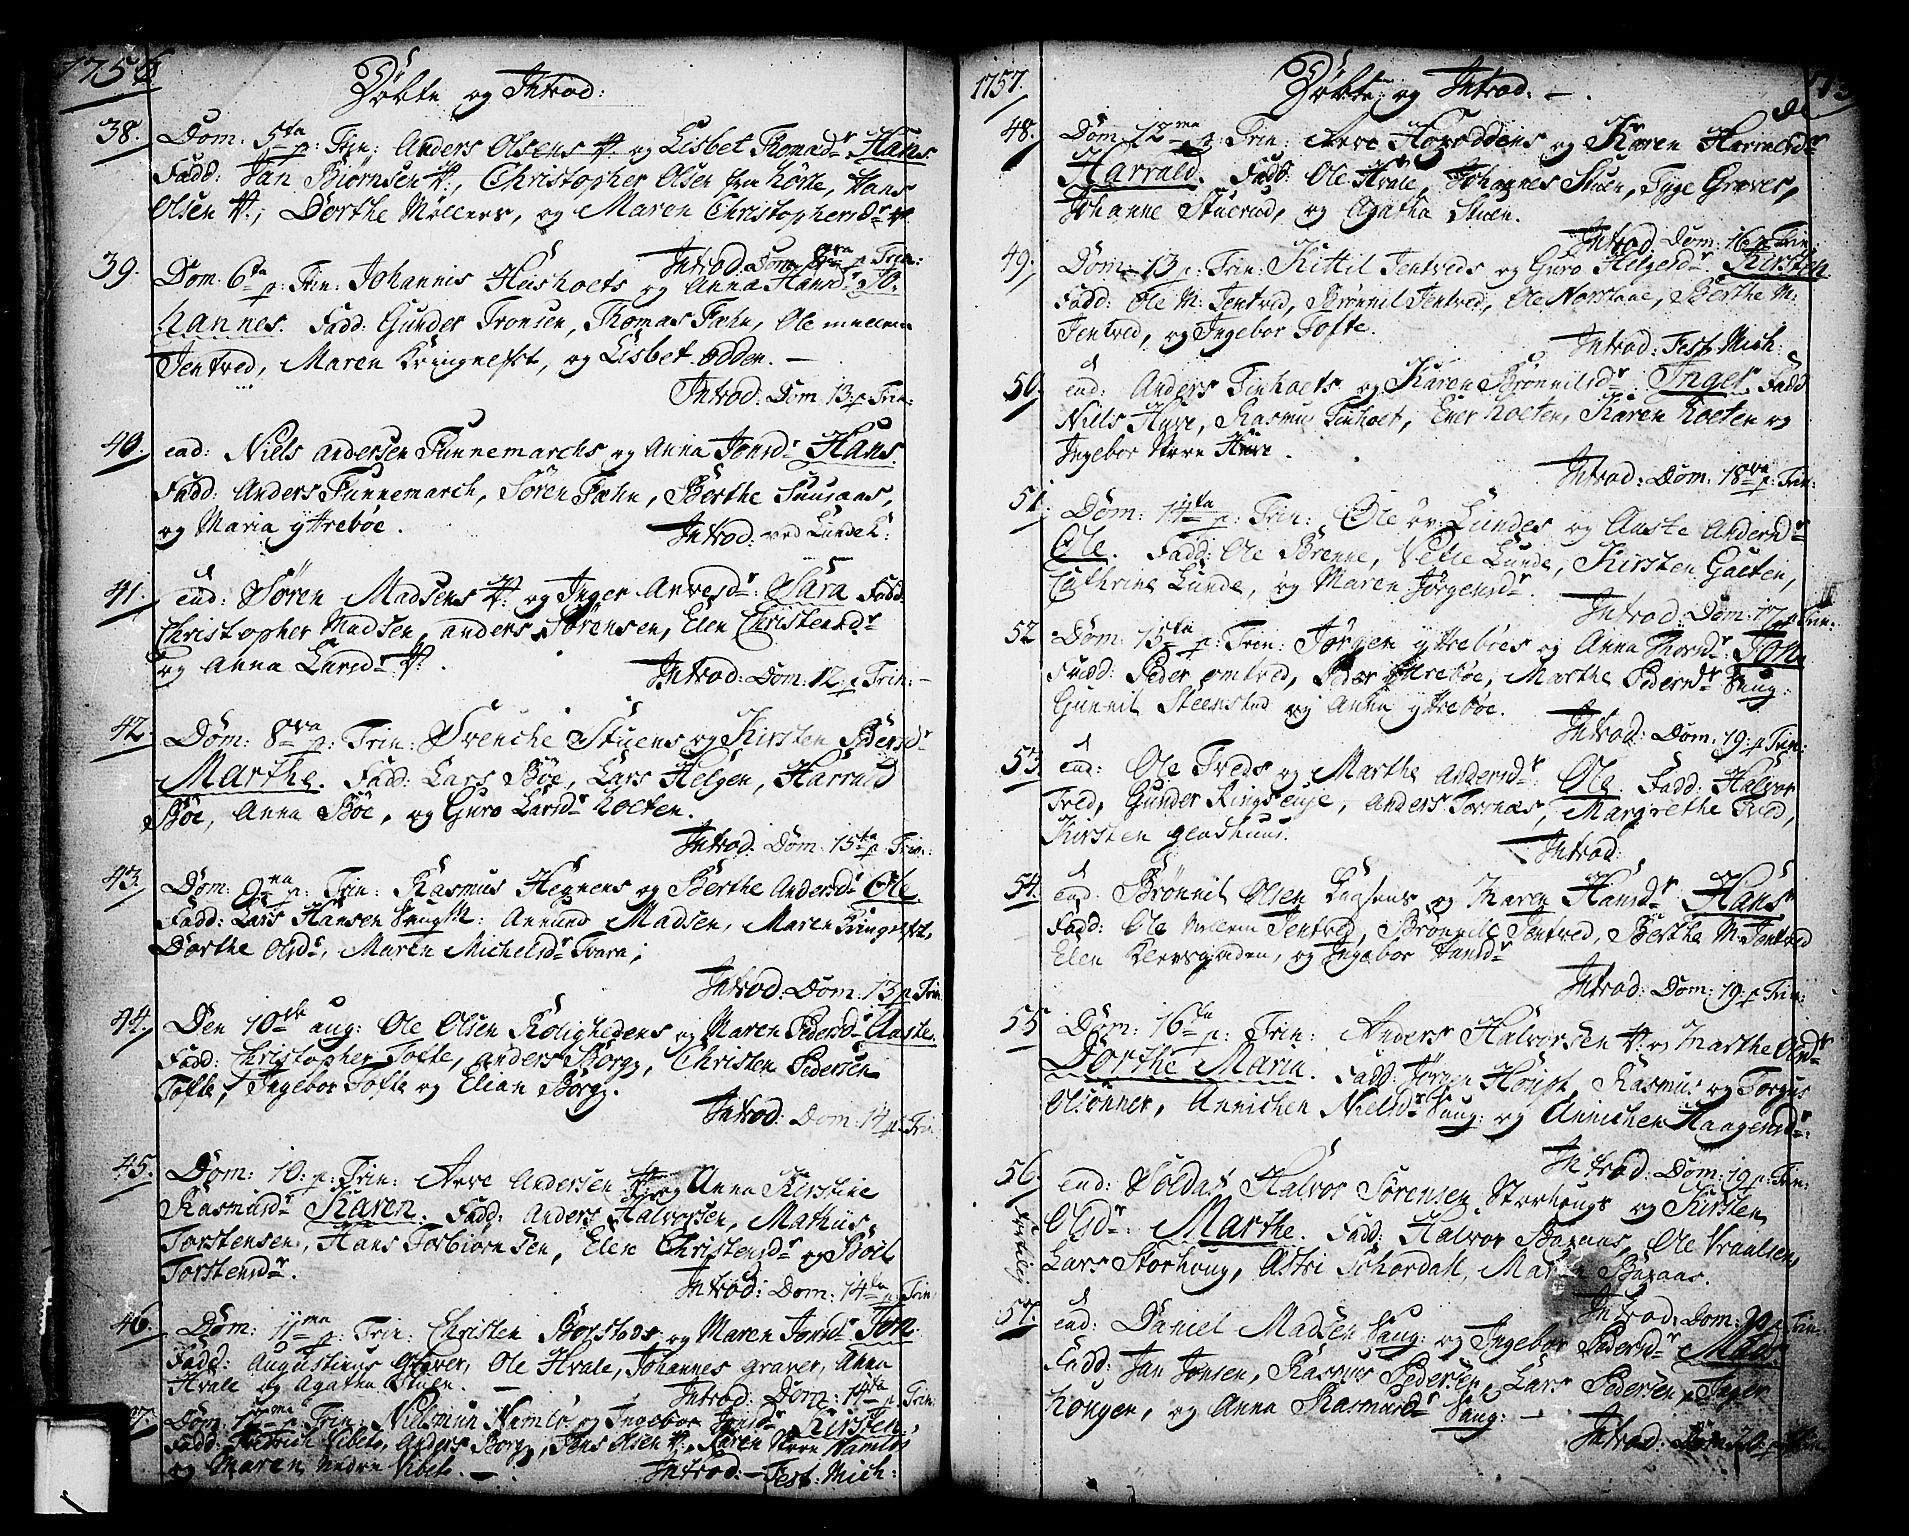 1756
Döbte og Introd:
38. Dom: 5ta p: Trin: Anders Olsens V: og Lisbet Thomasdr Hans
Fadd: Jan Biørnsen V:, Christopher Olsen, Hans
Olsen V:, Dorthe Møllers, og Maren Christophersdr V:
Introd: Dom: 8va p Trin:
39. Dom: 6ta p: Trin: Johannis Hushoets og Anna Hansdr Jo-
hannes. Fadd: Gunder Tronsen, Thomas Fæhn, Ole mellem
Jentved, Maren Kringnelst, og Lisbet Odden. —
Introd: Dom 13: p Trin:
40. ead: Niels Andersen Funnemarchs og Anna Jonsdr Hans.
Fadd: Anders Funnemarch, Sören Fæhn, Berthe Suusaas,
og Maria yttrebøe.
Introd: ved Lunde K:
41. ead: Sören Madsens V: og Inger Arvesdr Sara Fadd:
Christopher Madsen, Anders Sörensen, Elen Christensdr
og Anna Larsdr V:
Introd: Dom: 12: p Trin:
42. Dom: 8va p: Trin: Svenche Stuens og Kirsten Pedersdr
Marthe. Fadd: Lars Bøe, Lars Helgen, Harrald
Bøe, Anna Bøe, og Guro Larsdr hoeten.
Introd: Dom: 15ta p: Trin:
43. Dom: 9na p: Trin: Rasmus Hegnens og Berthe Andersdr Ole
Fadd: Lars Hansen Saug, Amund Madsen, Maren Kringelst,
Dorthe Olsdr, Maren Michelsdr Tvara;
Introd: Dom: 13 p Trin:
44. Den 10de aug: Ole Olsen Rolighedens og Maren Pedersdr Aaste.
Fadd: Christopher Tofte, Anders Borg, Christen Pedersen
Tofte, Ingebor Tofte og Elian Borg.
Introd: Dom: 14 p: Trin:
45. Dom: 10: p: Trin: Arve Andersen V: og Anna Kirstine
Rasmusdr Karen. Fadd: Anders Halvorsen, Mathius
Torstensen, Hans Torbiornsen, Elen Christensdr og Boil
Torstensdr.
Introd: Dom: 14ta p: Trin:
46. Dom: 11ma p: Trin: Christen Bogstads og Maren Jonsdr Jon.
Fadd: Augustinus Graver, Ole Hvale, Johannes graver, Anna
Hvale og Agatha Stuen. —
Introd: Dom: 14ta p: Trin:
47. Dom: 12ma p: Trin: Nielsmun Namlös og Ingebor Jonsdr Kirsten
Fadd: Diedrich Vibeto, Anders Borg, Jens Olsen V:, Karen Store Namlös
og Maren nedre Vibeto. —
Introd: — Fest: Mich:
1757.
Döbte og Introd: —
48. Dom: 12ma p: Trin: Arve Hogoddens og Karen Harraldsdr
Harrald. Fadd: Ole Hvale, Johannes Stuen, Tyge Graver,
Johanne Stuerud, og Agatha Stuen.
Introd: Dom: 16 p Trin:
49. Dom: 13 p: Trin: Kittil Jentveds og Guro Helgesdr Kirsten
Fadd: Ole M: Jentved, Brönnil Jentved, Ole Norstaae, Berthe M:
Jentved, og Ingebor Tofte.
Introd: Fest: Mich:
50. ead: Anders Finhoets og Karen Brönnilsdr Inger Fadd
Niels Huve, Rasmus Finhoet, Ener hoeten, Karen hoeten og
Ingebor Store Huve.
Introd: Dom: 18va p: Trin:
51. Dom: 14ta p: Trin: Ole öv: Lundes og Aaste Andersdr
Ole. Fadd: Ole Brenne, Vetle Lunde, Kirsten Gaeten,
Cathrine Lunde, og Maren Jörgensdr.
Introd: Dom: 17 p Trin:
52 Dom: 15ta p: Trin: Jörgen yttrebøes og Anna Thorsdr Jon
Fadd: Peder omtved, Peder yttrebøe, Marthe Pedersdr Saug:
Gunnil Steenstad og Anna yttrebøe.
Introd: Dom: 19: p Trin:
53. ead: Ole Treds og Marthe Andersdr Ole. Fadd: Halvor
Tred, Gunder Ringseuje, Anders Tornæs, Margrethe Tved,
Kirsten gladhuus.
Introd:
54. ead: Brönnil Olsen og Maren Hansdr Hans
Fadd: Ole mellem Jentved, Brönnill Jentved, Berthe M: Jentved
Elen Kleevsgaden, og Ingebor Hansdr
Introd: Dom: 19 p Trin:
55 Dom: 16ta p: Trin: Anders Halvorsen V: og Marthe Andr
Dorthe Maria. Fadd: Jörgen Houpt, Rasmus og Torgus
Olsönner, Annichen Nielsdr Saug: og Annichen Haagensdr
Introd: Dom: 19 p: Trin:
56. ead: Soldat Halvor Sörensen Storhougs og Kirsten
Olsdr. Marthe. Fadd: Halvor Baraas, Ole Vraalsen,
Lars Storhoug, Astri Schordal, Maren Baraas.
Introd: Dom: 20 p Trin:
57. ead: Daniel Madsen Saug: og Ingebor Pedersdr Mads
Fadd: Jan Jonsen, Rasmus Pedersen, Lars Pedersen, Inger
Kougen, og Anna Rasmusdr Saug: —
Introd: Dom: 20 p Trin: